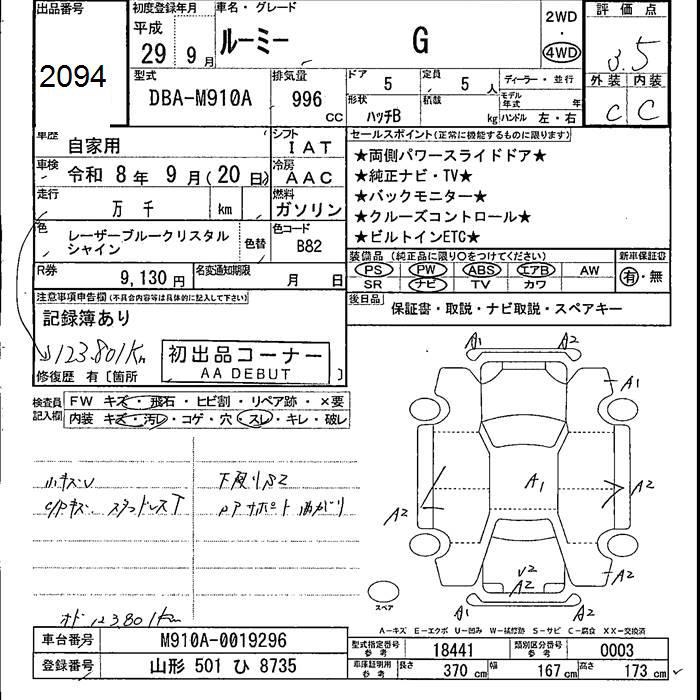 出品番号
2094
初度登録年月
平成
29 9 月
車名・グレード
ルーミー G
2WD
・
4WD
評価点
3.5
外装 内装
C C
型式
DBA-M910A
排気量
996 cc
ドア
5
定員
5 人
形状
ハッチB
積載
kg
ディーラー・並行
モデル年式 年
ハンドル 左・右
車歴
自家用
シフト
IAT
車検
令和 8 年 9 月(20 日)
冷房
AAC
走行
万 千 km
燃料
ガソリン
色
レーザーブルークリスタルシャイン
色替
色コード
B82
R券
9,130 円
名変通知期限
月 日
セールスポイント(正常に機能するものに限ります)
★両側パワースライドドア★
★純正ナビ・TV★
★バックモニター★
★クルーズコントロール★
★ビルトインETC★
装備品 (純正品に限り○をつけてください)
PS PW ABS エアB AW
SR ナビ TV カワ
新車保証書
有・無
後日品
保証書・取説・ナビ取説・スペアキー
注意事項申告欄(不具合内容等は具体的に記入して下さい)
記録簿あり
123.801Km
初出品コーナー
AA DEBUT
修復歴 有〔箇所 〕
検査員記入欄
FW キズ・飛石・ヒビ割・リペア跡・×要
内装 キズ・汚レ・コゲ・穴・スレ・キレ・破レ
小キズU
下廻りS2
スタッドレスT
サポート曲がり
123.801Km
A1 A1
A1
A1
A2 A2
V2
A2
A2
A1 A2
スペア
A-キズ E-エクボ U-凹み W-補修跡 S-サビ C-腐食 XX-交換済
車台番号
M910A-0019296
登録番号
山形 501 ひ 8735
型式指定番号
参考
18441
類別区分番号
参考
0003
車庫証明用
参考
長さ 370 cm 幅 167 cm 高さ 173 cm